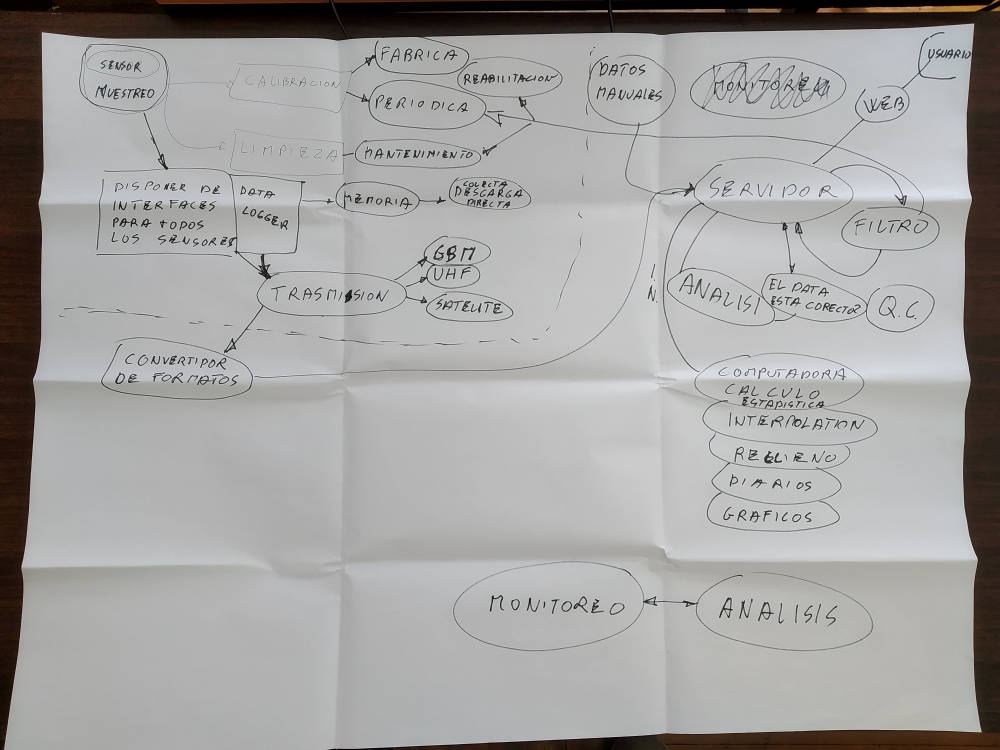 SENSOR
MUESTREO
CALIBRACION
LIMPIEZA
FABRICA
PERIODICA
REABILITACION
MANTENIMIENTO
DISPONER DE
INTERFACES
PARA TODOS
LOS SENSORES
DATA
LOGGER
MEMORIA
COLECTA
DESCARGA
DIRECTA
TRASMISSION
GBM
UHF
SATELITE
CONVERTIDOR
DE FORMATOS
DATOS
MANUALES
MONITOREO
USUARIO
WEB
SERVIDOR
FILTRO
I.N.
ANALISI
EL DATA
ESTA CORECTO?
Q.C.
COMPUTADORA
CALCULO
ESTADISTICA
INTERPOLATION
RELLIENO
DIARIOS
GRAFICOS
MONITOREO
ANALISIS